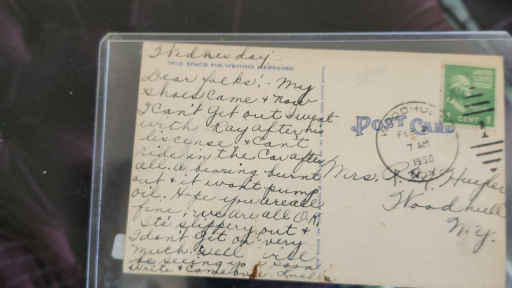 Wednesday
THIS SPACE FOR WRITING MESSAGES
Dear folks! - My
shoes came & now
I can't get out & went
with Ray after his
liscense & can't
ride in the Car after
all. a bearing burnt
out & it wont pump
oil. Hope you are all
fine, we are all O.K.
Its slippery out &
I don't get on very
much. Well
be seeing up soon
write & come over.
POST CARD
WOODHULL
7 AM
1950
N.Y.
1 CENT 1
Mrs.
Woodhull
N.Y.